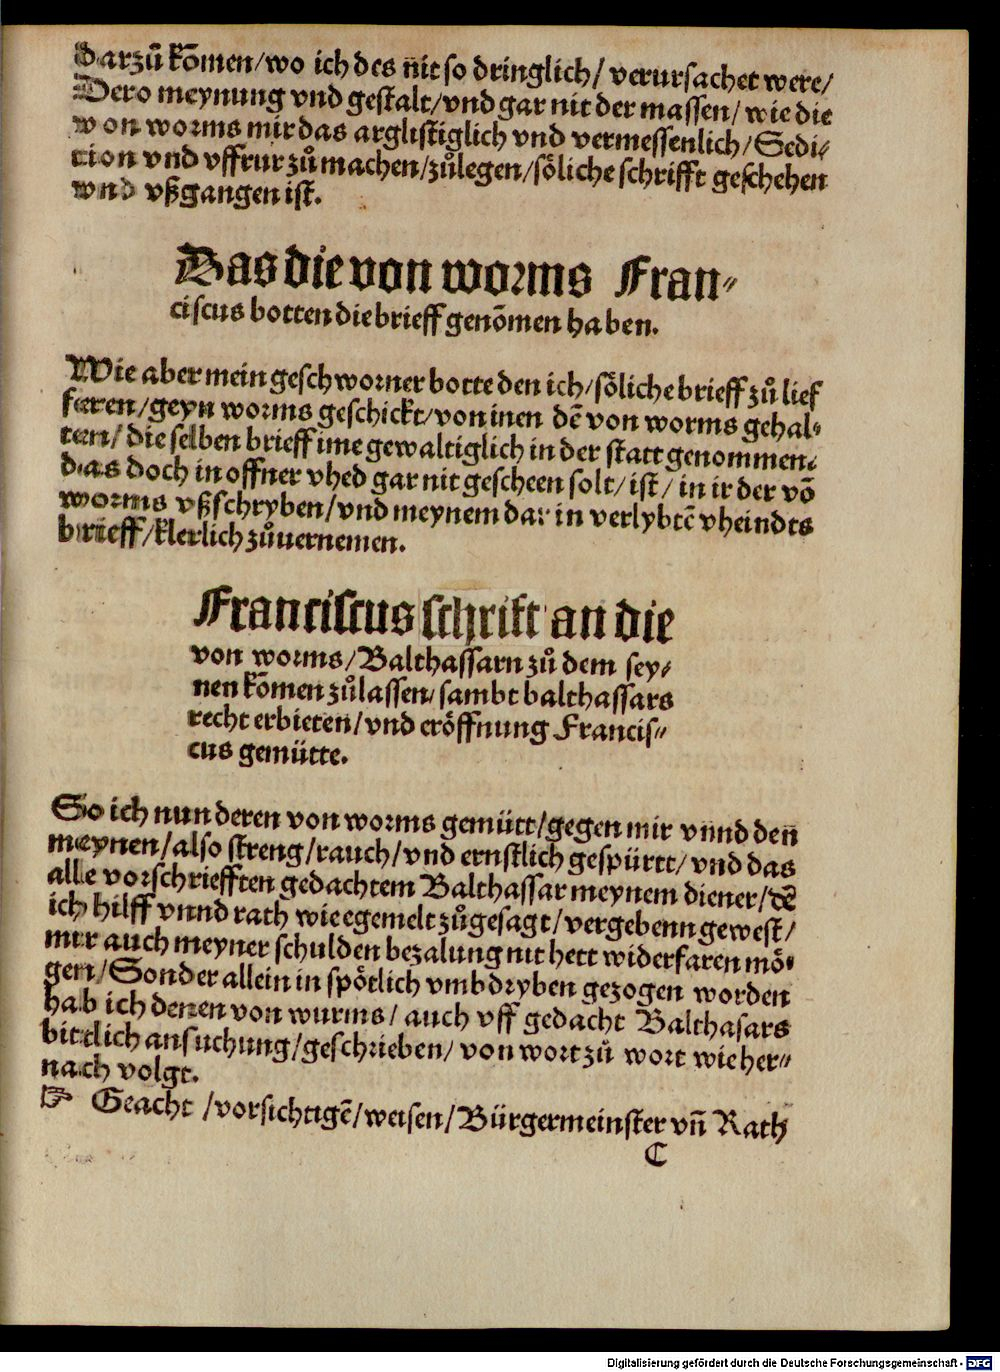 darzů kõmen/wo ich des nit so dringlich/ verursachet were/
Dero meynung vnd gestalt/vnd gar nit der massen/ wie die
von worms mir das arglistiglich vnd vermessenlich/ Sedi⸗
tion vnd vffrur zů machen/zůlegen/söliche schrifft geschehen
vnd vßgangen ist.
Das die von worms Fran⸗
ciscus botten die brieff genõmen haben.
Wie aber mein geschworner botte den ich/söliche brieff zů lief
feren/geyn worms geschickt/von inen dẽ von worms gehal⸗
ten/ die selben brieff ime gewaltiglich in der statt genommen⸗
das doch in offner vhed gar nit gescheen solt/ ist/ in ir der võ
worms vßschryben/vnd meynem dar in verlybtẽ vheindts
brieff/klerlich zůuernemen.
Franciscus schrift an die
von worms/Balthassarn zů dem sey⸗
nen kõmen zůlassen/sambt balthassars
recht erbieten/vnd eröffnung Francis⸗
cus gemütte.
So ich nun deren von worms gemütt/gegen mir vnnd den
meynen/also streng/rauch/vnd ernstlich gespürtt/vnd das
alle vorschriefften gedachtem Balthassar meynem diener/dẽ
ich hilff vnnd rath wie egemelt zůgesagt/vergebenn gewest/
mir auch meyner schulden bezalung nit hett widerfaren mö⸗
gen/Sonder allein in spötlich vmbdryben gezogen worden
hab ich denen von wurms/ auch vff gedacht Balthasars
bittlich ansuchung/geschrieben/ von wort zů wort wie her⸗
nach volgt.
☞ Geacht /vorsichtigẽ/weisen/Bürgermeinster vñ Rath
C
Digitalisierung gefördert durch die Deutsche Forschungsgemeinschaft - DFG